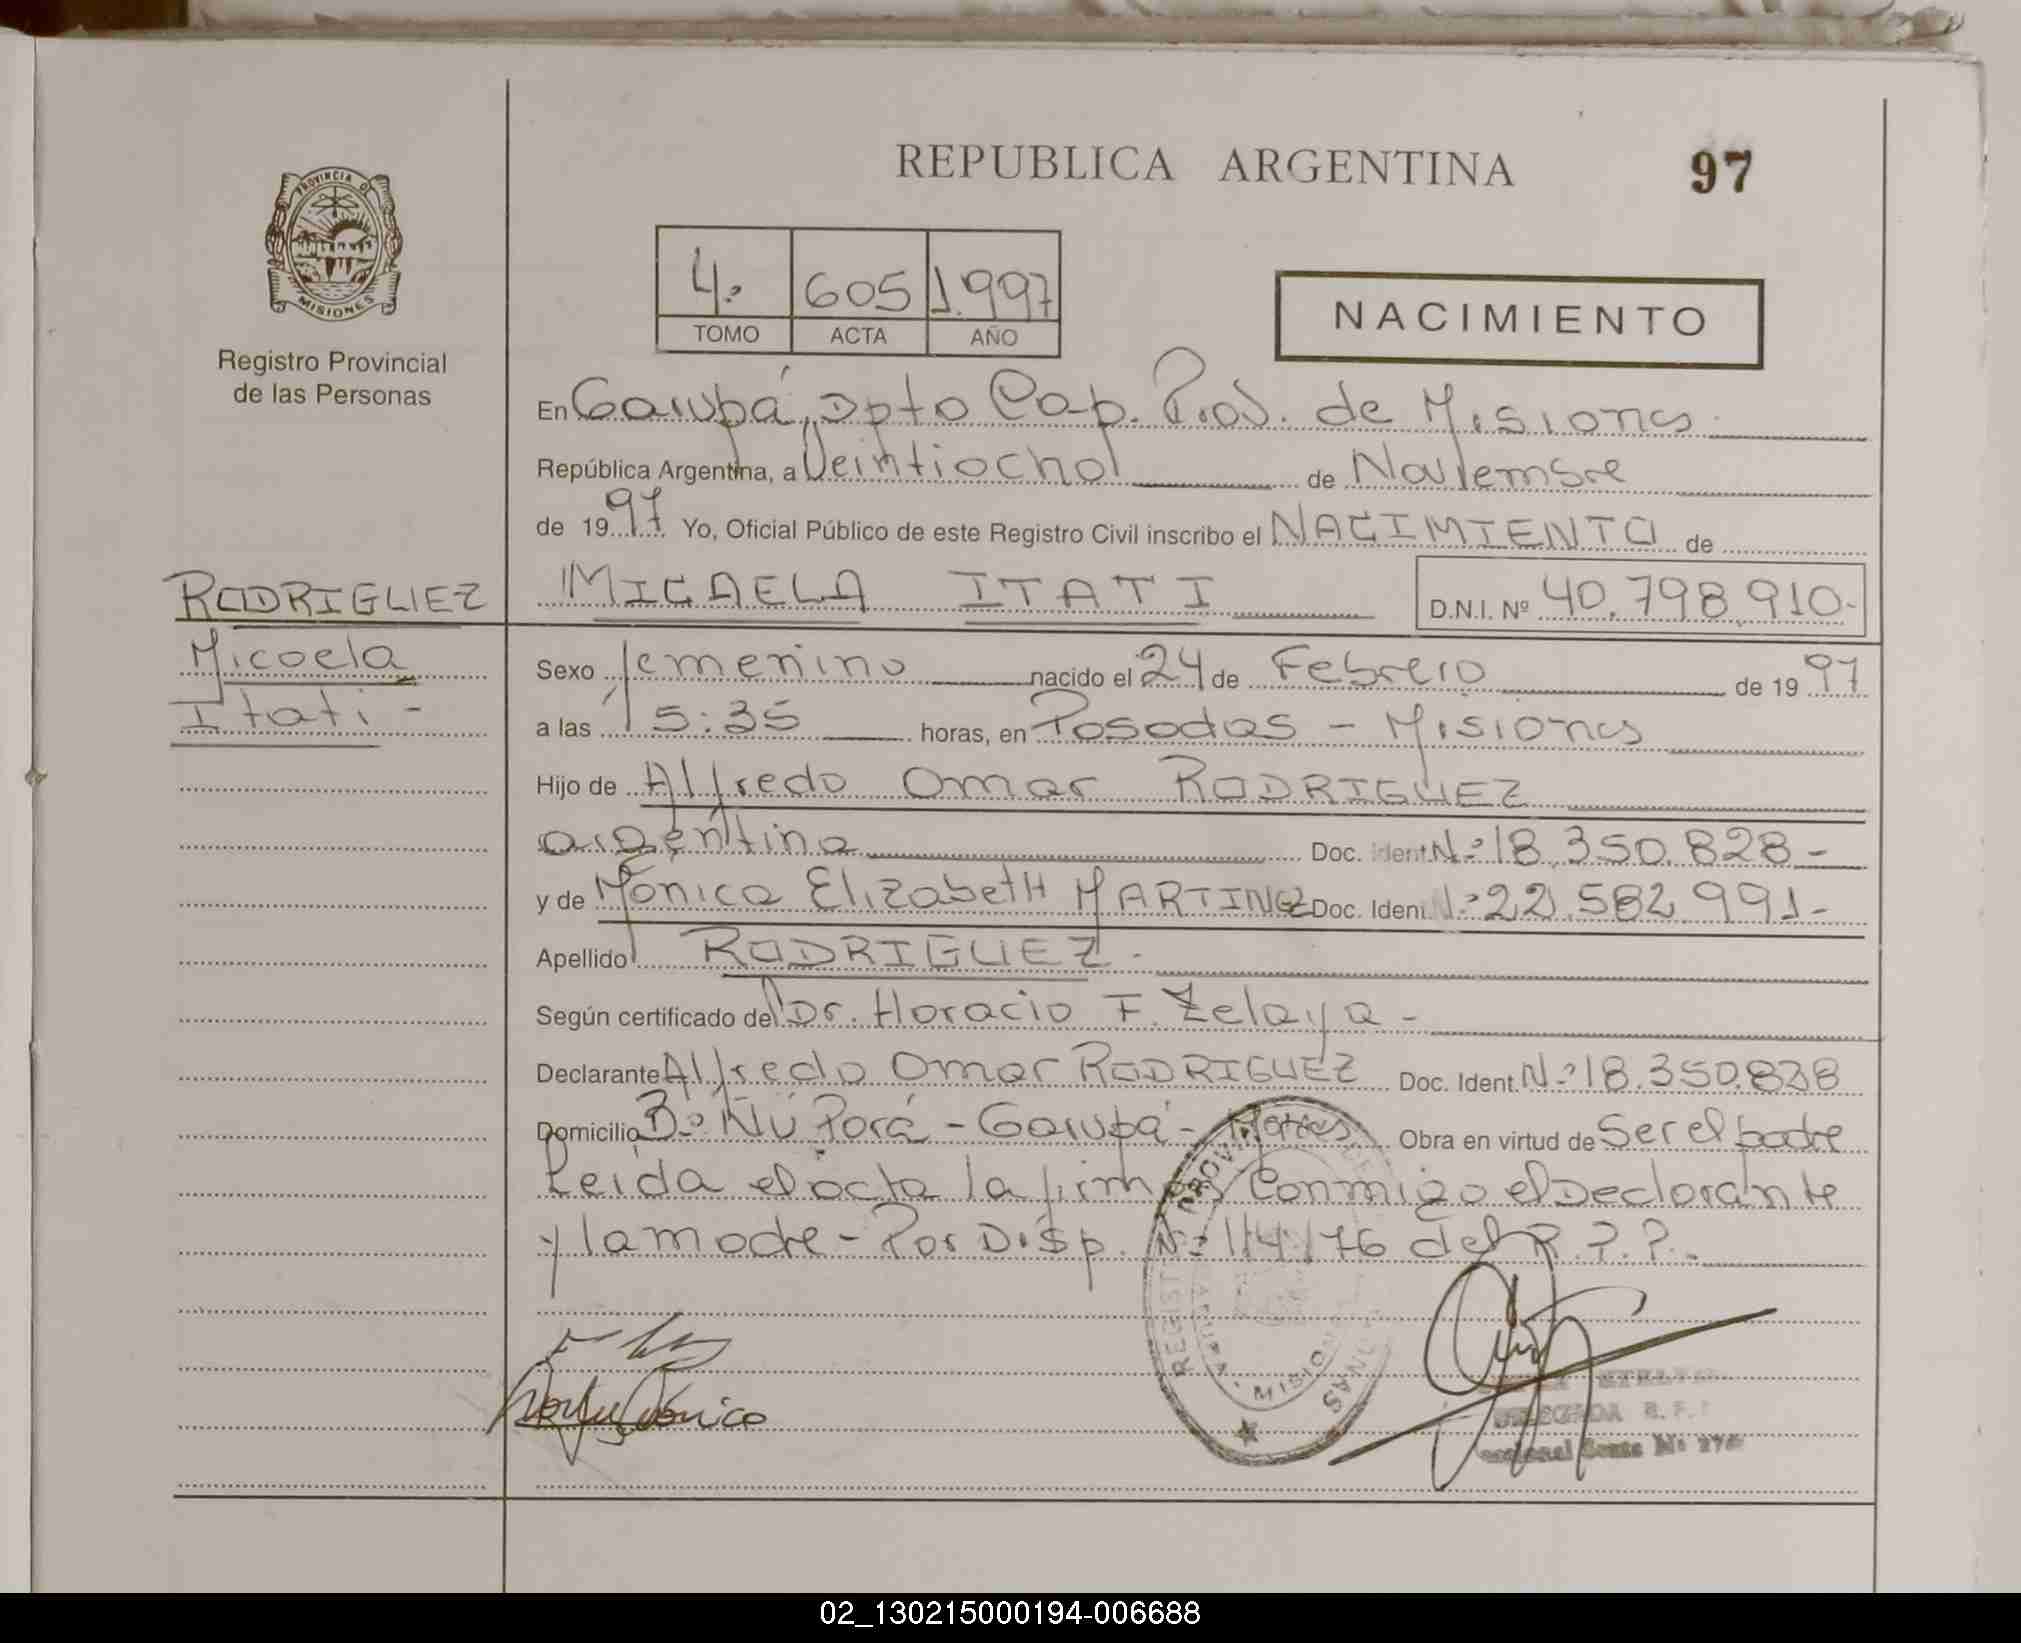 REPUBLICA ARGENTINA 97
PROVINCIA DE MISIONES
Registro Provincial
de las Personas
4º 605 1.997
TOMO ACTA AÑO
NACIMIENTO
En Garupá, Dpto Cap. Prov. de Misiones
República Argentina, a Veintiocho de Noviembre
de 1997 Yo, Oficial Público de este Registro Civil inscribo el NACIMIENTO de
RODRIGUEZ MICAELA ITATI D.N.I. Nº 40.798.910-
Micaela
Itati -
Sexo femenino nacido el 24 de Febrero de 1997
a las 15:35 horas, en Posadas - Misiones
Hijo de Alfredo Omar RODRIGUEZ
argentina Doc. Ident. Nº 18.350.828-
y de Mónica Elizabeth MARTINEZ Doc. Ident. Nº 22.582.991-
Apellido RODRIGUEZ -
Según certificado de Dr. Horacio F. Zelaya -
Declarante Alfredo Omar RODRIGUEZ Doc. Ident. Nº 18.350.828
Domicilio Bº Ñú Porá - Garupá - Mnes Obra en virtud de Ser el padre
Leida el acta la firman Conmigo el Declarante
y la madre - Por Disp. Nº 114/76 del R.P.P.
MISIONES
02_130215000194-006688